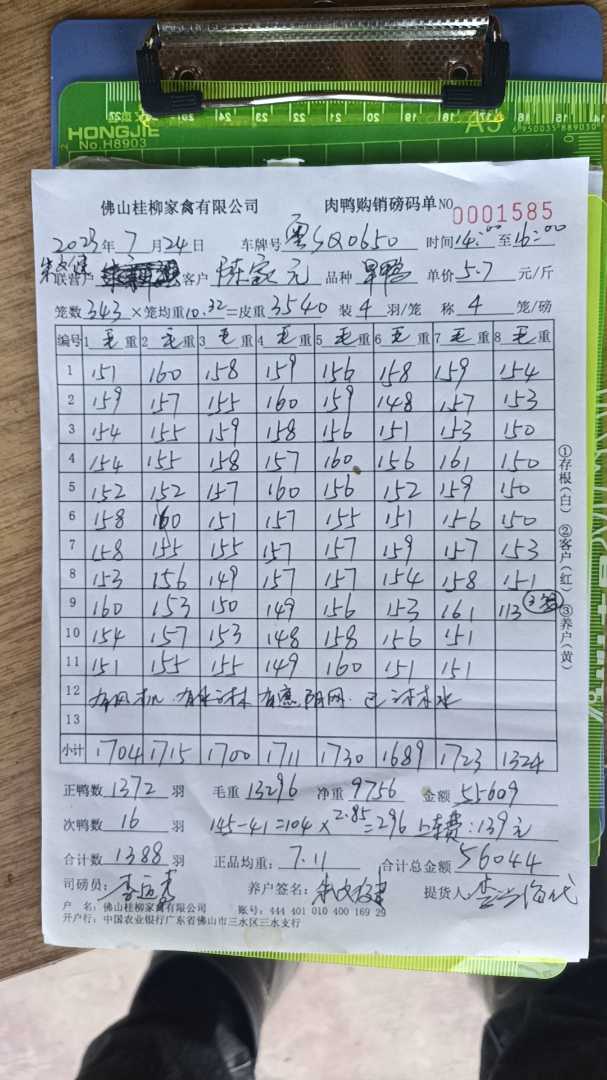 HONGJIE
No.H8903
A5
6 950035 889030
佛山桂柳家禽有限公司 肉鸭购销磅码单 NO 0001585
2023年7月24日 车牌号 粤SQ0650 时间 14:00 至 16:00
联营户 客户 陈家元 品种 旱鸭 单价 5.7 元/斤
笼数 343 ×笼均重 10.32 =皮重 3540 装 4 羽/笼 称 4 笼/磅
编号 1 毛 重 2 毛 重 3 毛 重 4 毛 重 5 毛 重 6 毛 重 7 毛 重 8 毛 重
1 151 160 158 159 156 158 159 154
2 159 157 155 160 159 148 157 153
3 154 155 159 158 156 151 153 150
4 154 155 158 157 160 156 161 150
5 152 152 157 160 156 152 159 150
6 158 160 151 157 155 151 156 150
7 158 155 155 157 157 159 157 153
8 153 156 149 157 157 154 158 151
9 160 153 150 149 156 153 161 113 3笼
10 154 157 153 148 158 156 151
11 151 155 155 149 160 151 151
12 有风机 有 有 网 已 水
13
小计 1704 1715 1700 1711 1730 1689 1723 1324
正鸭数 1372 羽 毛重 13296 净重 9756 金额 55609
次鸭数 16 羽 145-41=104×2.85=296 上车费:139元
合计数 1388 羽 正品均重: 7.11 合计总金额 56044
司磅员: 养户签名: 提货人:
户 名: 佛山桂柳家禽有限公司 账号: 444 401 010 400 169 29
开户行: 中国农业银行广东省佛山市三水区三水支行
①存根(白) ②客户(红) ③养户(黄)